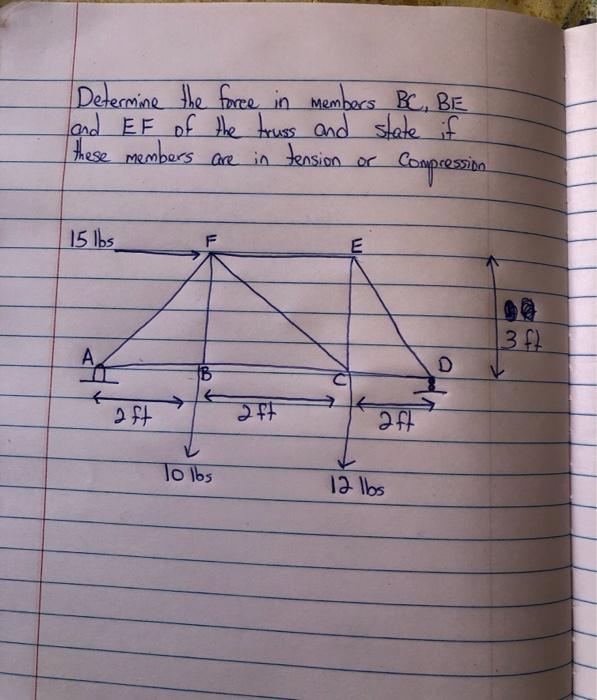 Determine the force in members BC, BE
and EF of the truss and state if
these members are in tension or Compression
15 lbs
F
E
3 ft
A
B
C
D
2 ft
2 ft
2 ft
10 lbs
12 lbs